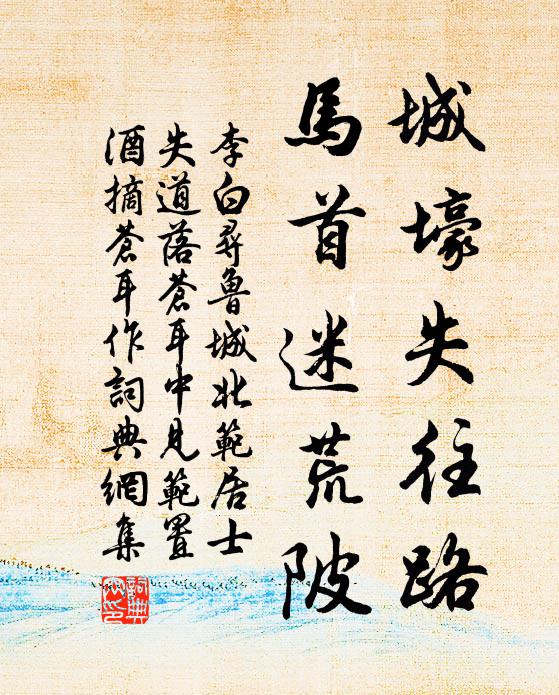 城壕失往路
馬首迷荒陂
李白尋魯城北範居士
失道落蒼耳中見範置
酒摘蒼耳作詞典網集